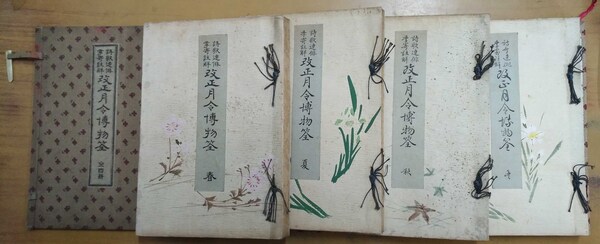 詩歌連俳
季寄註解
改正月令博物筌
全四冊
詩歌連俳
季寄註解
改正月令博物筌
春
詩歌連俳
季寄註解
改正月令博物筌
夏
詩歌連俳
季寄註解
改正月令博物筌
秋
詩歌連俳
季寄註解
改正月令博物筌
冬